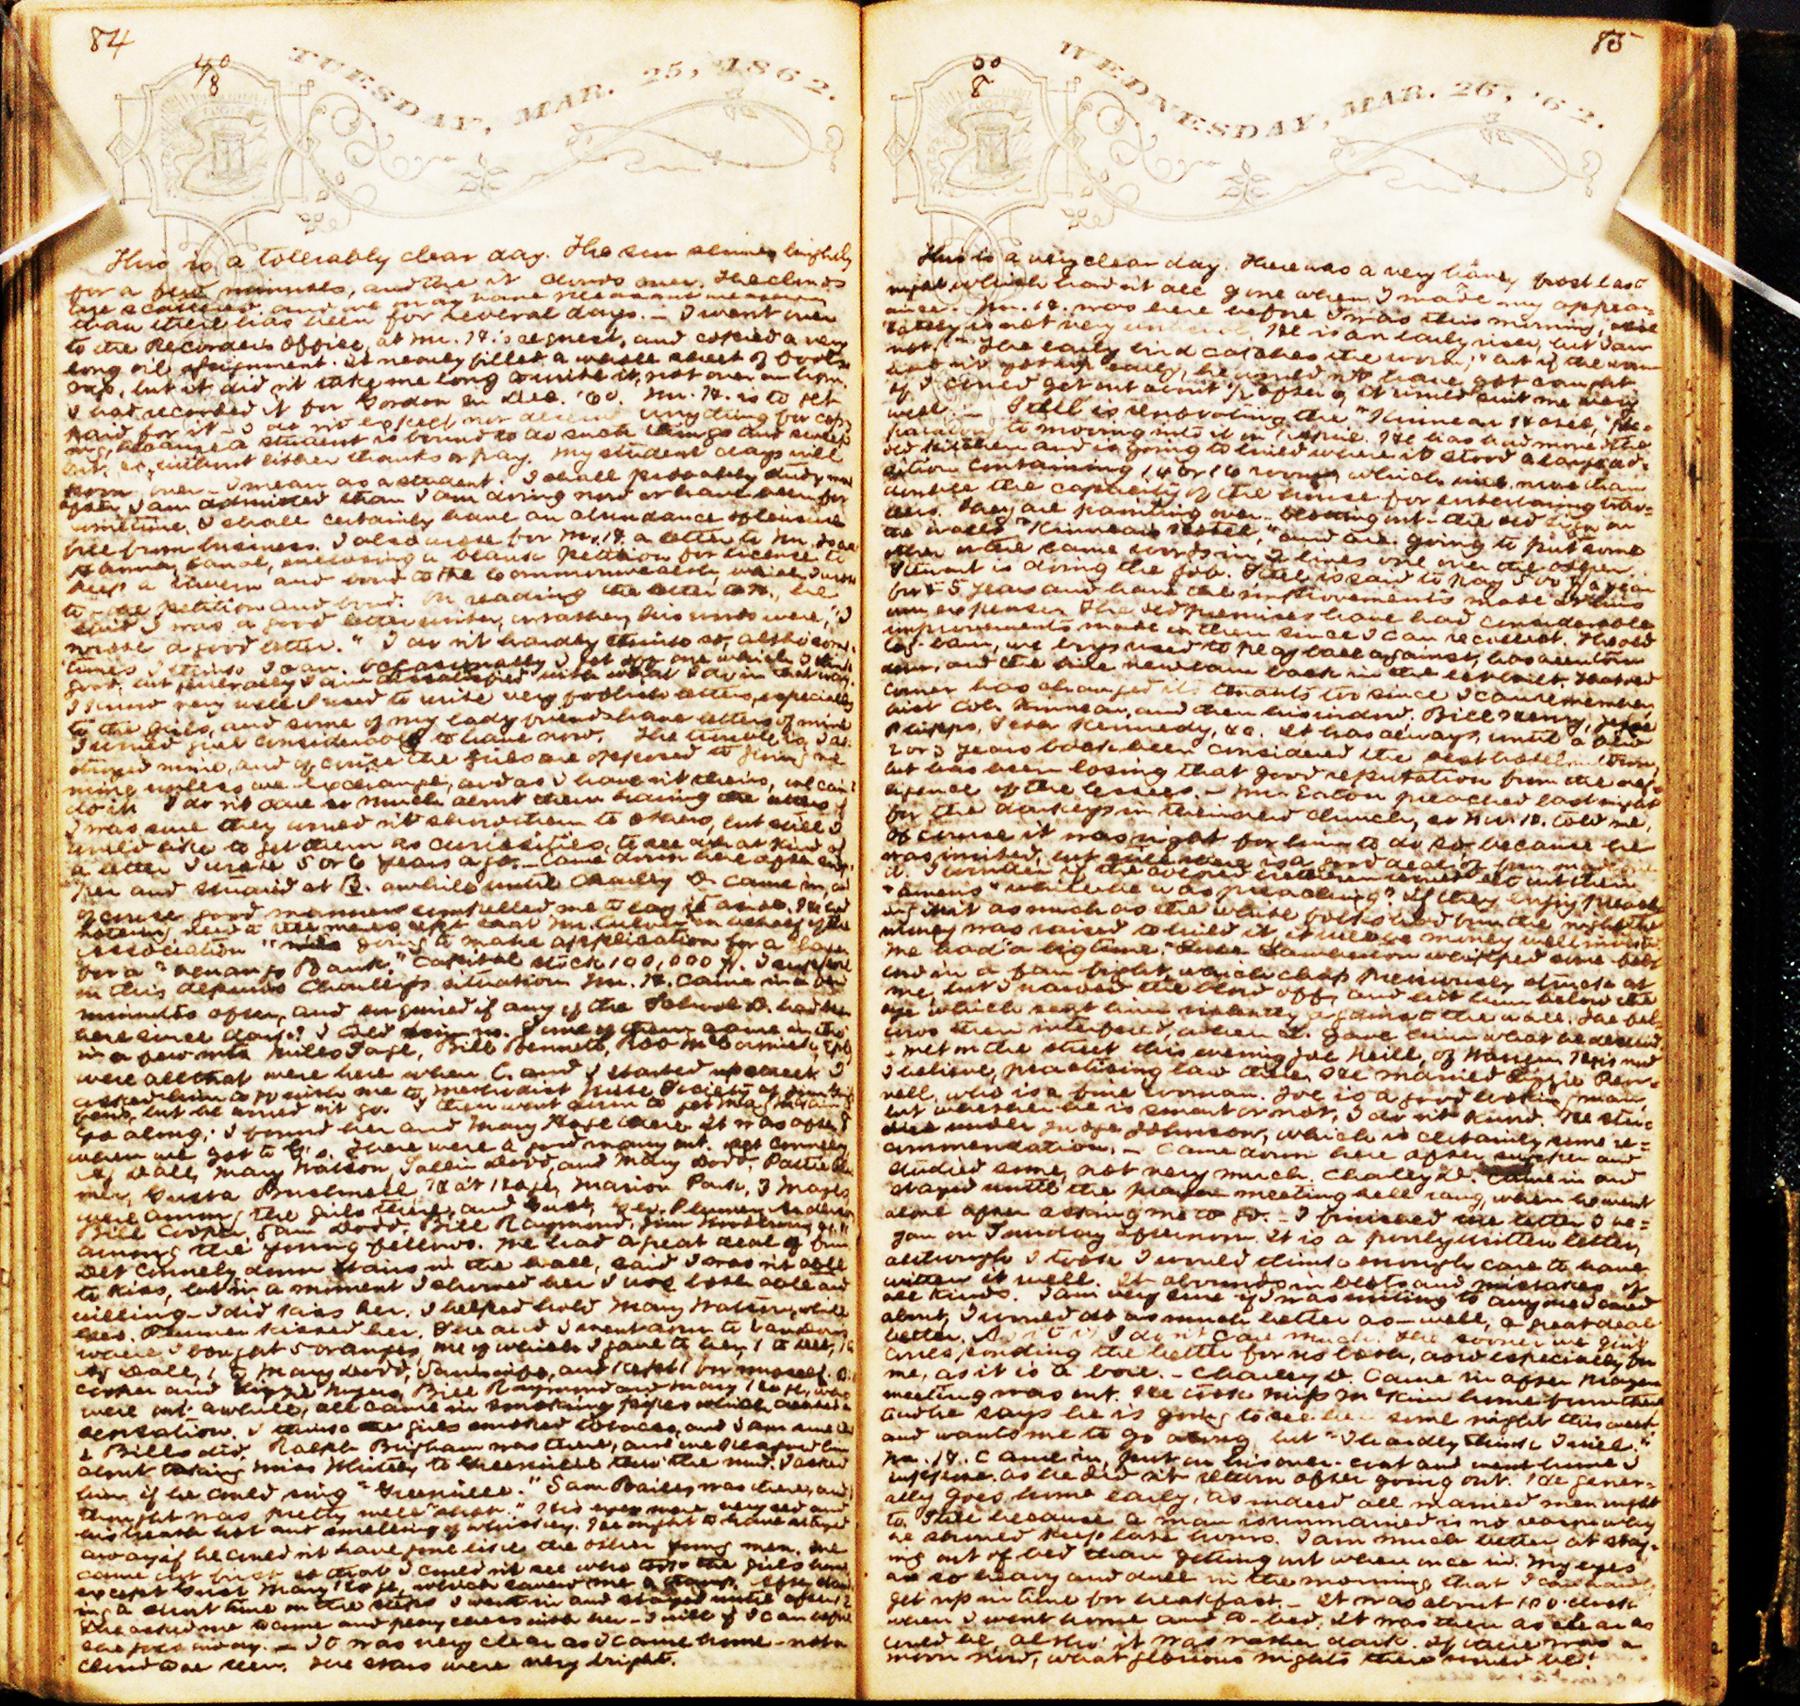 84
40
8
TUESDAY, MAR. 25, 1862.
This is a tolerably clear day. The sun shines brightly
for a few minutes, and then it clouds over. The clouds
are scattered and we may have pleasant weather
than there has been for several days. — I went over
to the Recorder's Office, at Mr. H's request, and copied a very
long oil assignment. It nearly filled a whole sheet of fools-
cap, but it did n't take me long to write it, not over an hour.
I had recorded it for Gordon in Dec. '60. Mr. H. is to get
paid for it — I do n't expect nor desire anything for copy-
ing, because a student is bound to do such things and sweep
out, &c, without either thanks or pay. My student days will
soon be over — I mean as a student. I shall probably study more
after I am admitted than I am doing now or have been for
sometime. I shall certainly have an abundance of leisure
free from business. I also wrote for Mr. H. a letter to Mr.
Hanna, Canal, enclosing a blank petition for license to
keep a tavern and bond to the Commonwealth, which
to the petition and bond. On reading the letter to H., he
said I was a good letter writer, or rather, his words were, "I
wrote a good letter." I do n't hardly think so, altho' some-
times I think I can. Occasionally I get off one which I think
good, but generally I am dissatisfied with what I do in that way.
I know very well I used to write very foolish letters, especially
to the girls, and some of my lady friends have letters of mine
I would give considerable to have now. The trouble is I de-
stroyed mine, and of course the girls are opposed to giving me
mine unless we exchange, and as I have n't theirs, we can't
do it. I do n't care so much about them having the letters if
I was sure they would n't show them to others, but still I
would like to get them as curiosities, to see what kind of
a letter I wrote 5 or 6 years ago. — Came down here after sup-
per and studied at B. awhile until Charley D. came in, and
of course good manners compelled me to lay it aside. He had
nothing new to tell me except that Mr. Culver on behalf of the
Association "was going to make application for a
for a "Venango Bank." Capital stock 100,000 $. I suppose
on this depends Charley's situation. Mr. H. came in a few
minutes after, and enquired if any of the School D. had been
here since day? I told him no. Some of them came in tho'
in a few mts. Miles Sage, Bill Bennett, Rob McCormick,
were all that were here when C. and I started up street. I
asked him to go with me to Methodist Mite Society at
but he would n't go. I then went down to get Mag
to go along. I found her and Mary Hoge there. It was after
when we got to G.'s. There were a good many out. Det Connely,
Dall, Mary Watson, Sallie Dodd, and Mary Dodd, Pattie
Gusta Bushnell, Hat Hoge, Marion Park, 3 Mays
were among the girls there, and Gust, Geo. Plumer,
Bill Cooper, Sam Dodd, Bill Raymond, Jim
among the young fellows. We had a great deal of fun.
Det Connely down stairs in the hall, said I was n't able
to kiss, but in a moment I showed her I was both able and
willing — I did kiss her. I helped hold Mary Watson, while
Geo. Plumer kissed her. She and I went down to
where I bought 5 oranges, one of which I gave to her, 1 to
Dall, 1 to Mary Dodd, Sam's wife, and kept 1 for myself.
Cooper and Lizzie Myers, Bill Raymond and Mary Hoge, who
were out awhile, all came in smoking pipes which created a
sensation. I think the girls smoked tobacco, and I am sure the
2 Bills did. Ralph Brigham was there, and we
about taking Miss Whitely to Greenville thro' the mud. I asked
him if he could sing "Greenville." Sam Bailey was there, and I
thought was pretty well "shot." His eyes were very red and
his breath hot and smelling of whiskey. He ought to have stayed
away if he could n't have gone like the other young men. We
came out first so that I could n't see who took the girls home
except Gust Mary Hoge, which saved me a tramp. After stand-
ing a short time on the steps I went in and stayed until after
She asked me to come and play chess with her — I will if I can before
she goes away. — It was very clear as I came home — not a
cloud to be seen. The stars were very bright.
85
50
8
WEDNESDAY, MAR. 26, '62.
This is a very clear day. There was a very heavy frost last
night which had n't all gone when I made my appear-
ance. — Mr. H. was here before I was this morning, which
lately is not very unusual. He is an early riser, but I am
not. — "The early bird catches the worm," but if the worm
had n't got up early, he would n't have got caught.
If I could get out about ½ after 9, it would suit me very
well. — Still is renovating the "Kinnear House," pre-
paratory to moving into it in April. He has had moved the
old kitchen and is going to build where it stood a large ad-
dition containing 14 or 16 rooms, which will more than
double the capacity of the house for entertaining trav-
lers. They are painting over — blotting out — the old sign on
the walls "Kinnear's Hotel," and are going to put some
other or the same words in 2 lines one over the other.
Stewart is doing the job. Still is said to pay 500 $ a year
for 5 years and have the improvements made at his
own expense. The old premises have had considerable
improvements made in them since I can recollect. The old
log barn, we boys used to play ball against, has been torn
down, and the nice new barn back in the lot built. That old
corner has changed its tenants too since I can remember,
first Col. Kinnear, and then his widow, Bill Henry,
Phipps, Peter Kennedy, &c. It has always, until a few
2 or 3 years back been considered the best hotel in town,
but has been losing that good reputation from the neg-
ligence of the lessees. — Mr. Eaton preached last night
for the darkeys in their new church, so Mr. H. told me.
Of course it was right for him to do so because he
was invited, but still there is a good deal of fun made of
it. I wonder if the colored brethren would let out their
"amens" while he was preaching? If they enjoy preach-
ing in it as much as the white folks had fun the night the
money was raised to build it, it will be money well invested.
We had "a big time." Luke Lamberson whipped some fel-
low in a fair fight, which chap previously struck at
me, but I warded the blow off, and hit him below the
eye which sent him violently against the wall. The fel-
lows then interfered, when L. gave him what he deserved.
— Met on the street this evening Joe Neill, of Warren. He is now
I believe, practising law there. He married Lizzie Pen-
nell, who is a fine woman. Joe is a good looking man,
but whether he is smart or not, I do n't know. He stu-
died under Judge Johnson, which is certainly some re-
commendation. — Came down here after supper and
studied some, not very much. Charley D. came in and
stayed until the prayer meeting bell rang, when he went
alone after asking me to go. — I finished the letter I be-
gan on Sunday afternoon. It is a poorly written letter,
although I took I would think enough care to have
written it well. It abounds in blots and mistakes of
all kinds. I am very sure if I was writing to any one I cared
about, I would do as much better as — well, a great deal
better. As it is I don't care much. The sooner we quit
corresponding the better for us both, and especially for
me, as it is a bore. — Charley D. came in after prayer
meeting was out. He took Miss McKim home from there
and he says he is going to see her some night this week
and wants me to go along, but "I hardly think I will."
Mr. H. came in, put on his over-coat and went home I
suppose, as he did n't return after going out. He gener-
ally goes home early, as indeed all married men ought
to. Still because a man is unmarried is no reason why
he should keep late hours. I am much better at stay-
ing out of bed than getting out when once in. My eyes
are so heavy and dull in the morning that I can hardly
get up in time for breakfast. — It was about 10 o'clock
when I went home and to-bed. It was then as clear as
could be, altho' it was rather dark. If there was a
moon now, what glorious nights there would be!